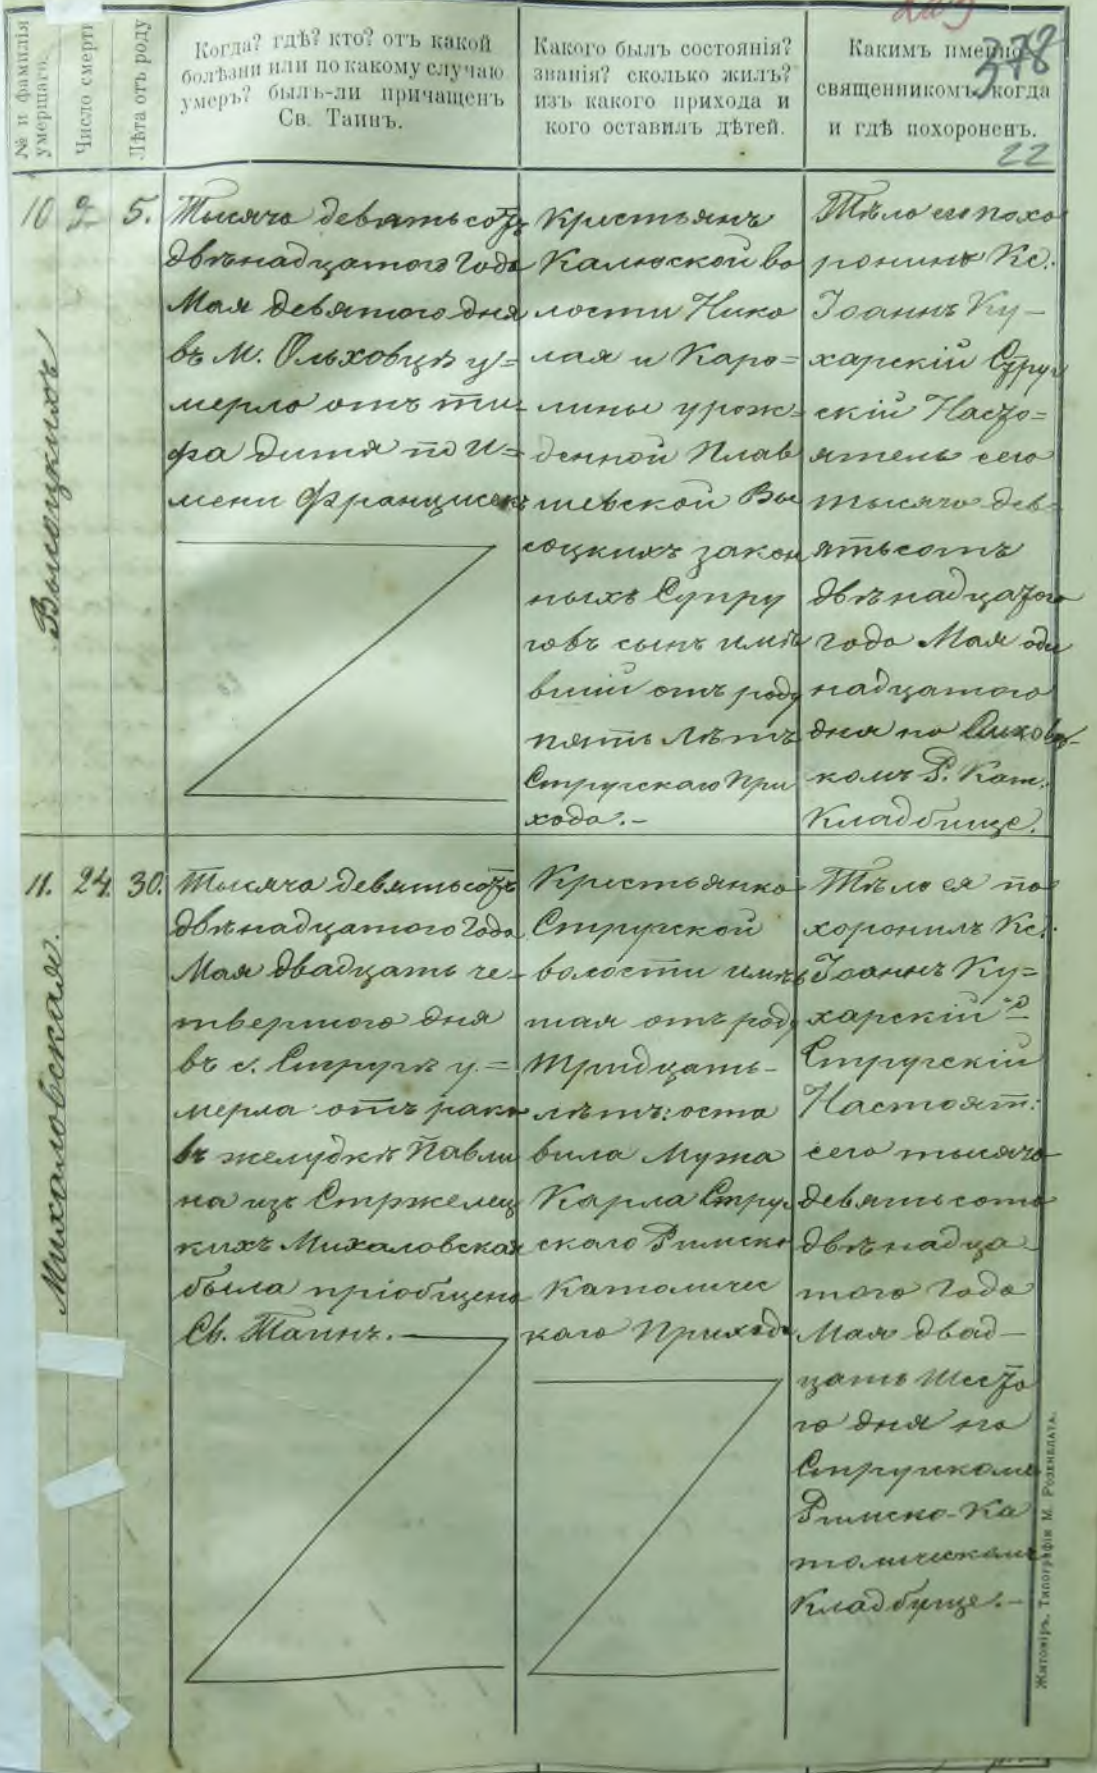 № и фамилія
умершаго.
Число смерти
Лѣта отъ роду
Когда? гдѣ? кто? отъ какой
болѣзни или по какому случаю
умеръ? былъ-ли причащенъ
Св. Таинъ.
Какого былъ состоянія?
званія? сколько жилъ?
изъ какого прихода и
кого оставилъ дѣтей.
Какимъ именно
священникомъ, когда
и гдѣ похороненъ.
378
22
10
Высоцкихъ
9
5.
Тысяча девятьсотъ
двѣнадцатого Года
Мая девятого дня
въ М. Ольховцѣ у=
мерло отъ ти-
фа дитя по И=
мени Францискъ
Крестьянъ
Калюской во
лости Нико
лая и Каро=
лины урож=
денной Плав
шевской Вы
соцкихъ закон
ныхъ Супру
говъ сынъ имѣ
вшій отъ роду
пять лѣтъ
Стружскаго При
хода.-
Тѣло его похо
ронилъ Кс.
Іоаннъ Ку-
харскій Струж
скій Насто=
ятель сего
тысяча дев-
ятьсотъ
двѣнадцатого
года Мая оди
надцатого
дня на Ольховѣ-
комъ Р. Кат.
Кладбище.
11.
Михаловская.
24.
30.
Тысяча девятьсотъ
двѣнадцатого Года
Мая двадцать че-
твертого дня
въ с. Стругѣ у=
мерла отъ рака
въ желудкѣ Павли
на изъ Стржелец
кихъ Михаловская
была пріобщена
Св. Таинъ.-
Крестьянка
Стружской
волости имѣв
шая отъ роду
Тридцать-
лѣтъ: оста
вила Мужа
Карла Струж
скаго Римско
Католичес
каго Прихода
Тѣло ея по
хоронилъ Кс.
Іоаннъ Ку=
харскій
Стружскій
Настоят:
сего тысяча
девятьсотъ
двѣнадца
того Года
Мая двад-
цать Шесто
го дня на
Стружскомъ
Римско-Ка
толическомъ
Кладбище.-
Житоміръ. Типографія М. Розенблата.